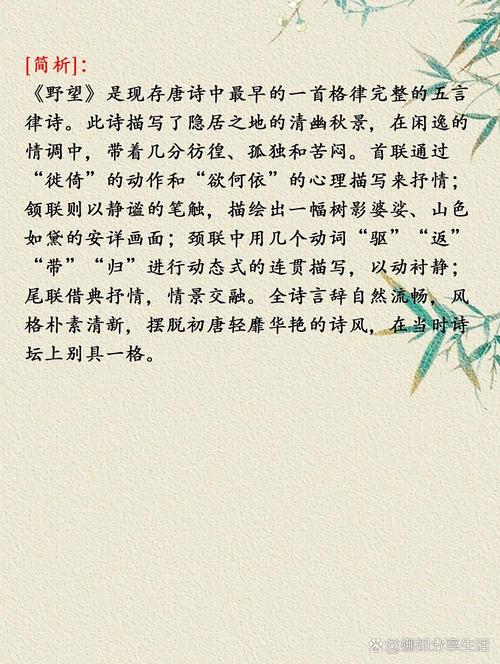 [简析]:
《野望》是现存唐诗中最早的一首格律完整的五言
律诗。此诗描写了隐居之地的清幽秋景，在闲逸的
情调中，带着几分彷徨、孤独和苦闷。首联通过
“徙倚”的动作和“欲何依”的心理描写来抒情；
颔联则以静谧的笔触，描绘出一幅树影婆娑、山色
如黛的安详画面；颈联中用几个动词“驱”“返”
“带”“归”进行动态式的连贯描写，以动衬静；
尾联借典抒情，情景交融。全诗言辞自然流畅，风
格朴素清新，摆脱初唐轻靡华艳的诗风，在当时诗
坛上别具一格。
@娜姐分享生活